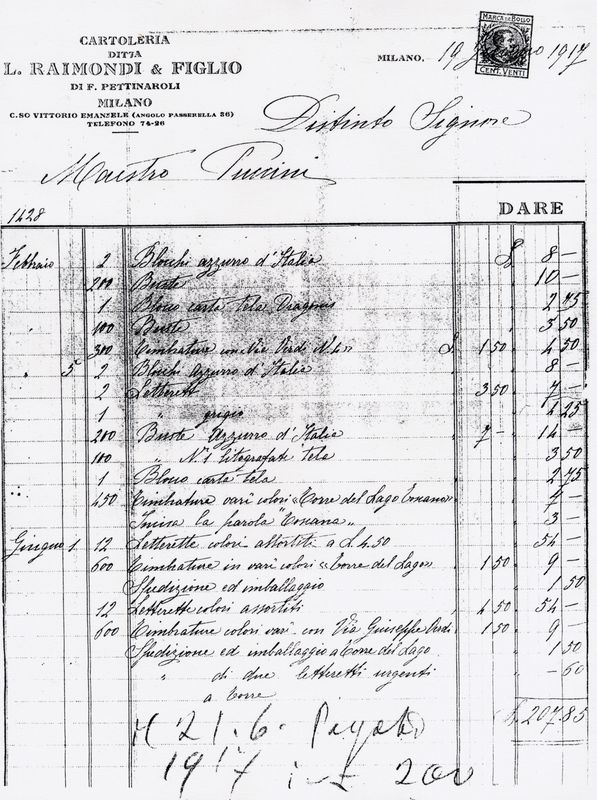 CARTOLERIA
DITTA
L. RAIMONDI & FIGLIO
DI F. PETTINAROLI
MILANO
C.SO VITTORIO EMANUELE (ANGOLO PASSERELLA 36)
TELEFONO 74-26
MARCA DA BOLLO
CENT. VENTI
MILANO, 19 1917
Distinto Signore
Maestro Puccini
1428
DARE
Febbraio 2 Blocchi azzurro d'Italia L 8 —
200 Buste 10 —
1 Blocco carta tela Dragons 2 75
" 100 Buste 3 50
300 Timbrature con Via Verdi N. 4 " L. 1 50 4 50
" 5 2 Blocchi Azzurro d'Italia 8 —
2 Letterett 3 50 7 —
1 " grigio 4 25
200 Buste Azzurro d'Italia 7 — 14 —
100 " N. 1 litografati tela 3 50
1 Blocco carta tela 2 75
450 Timbrature vari colori "Torre del Lago Toscana"
Incisa la parola "Toscana" 3 —
Giugno 1. 12 Letterette colori assortiti a L 4.50 54 —
600 Timbrature in vari colori "Torre del Lago" 1 50 9 —
Spedizione ed imballaggio 1 50
12 Letterette colori assortiti 4 50 54 —
600 Timbrature colori vari con Via Giuseppe Verdi 1 50 9 —
Spedizione ed imballaggio a Torre del Lago 1 50
" di due letteretti urgenti — 60
a Torre
L. 207.85
Il 21. 6. Pagato
1917 200